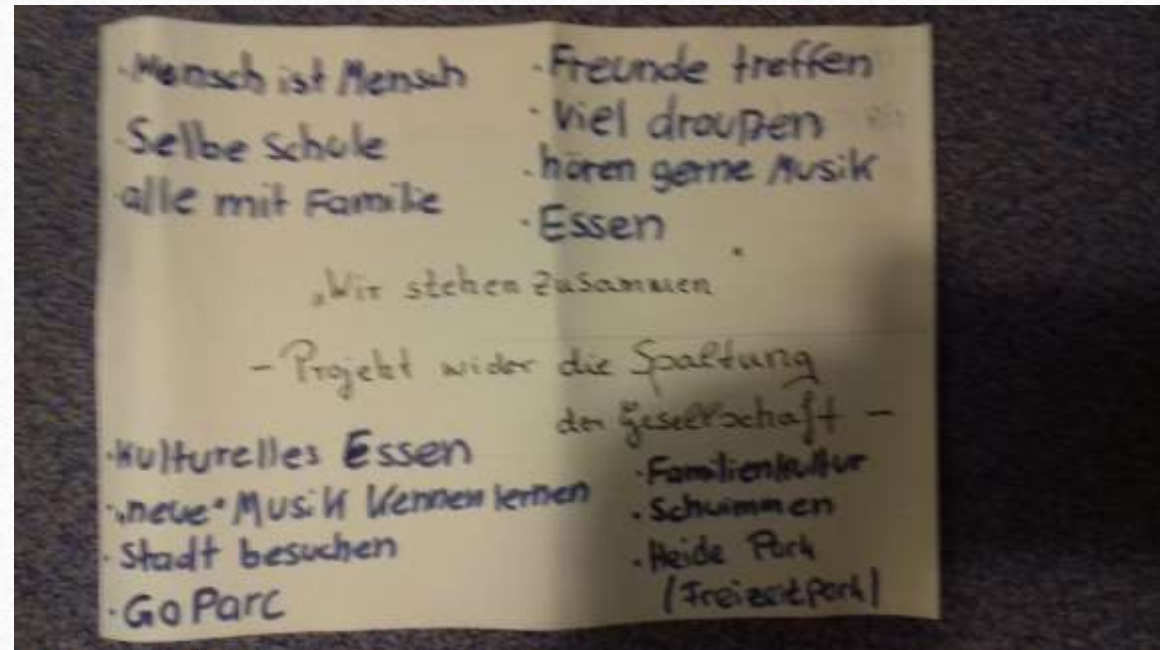 · Mensch ist Mensch
· Selbe Schule
· alle mit Familie
· Freunde treffen
· Viel draußen
· hören gerne Musik
· Essen
„Wir stehen zusammen"
- Projekt wider die Spaltung
der Gesellschaft -
· Kulturelles Essen
· „neue" Musik kennen lernen
· Stadt besuchen
· Go Parc
· Familienkultur
· Schwimmen
· Heide Park
(Freizeitpark)